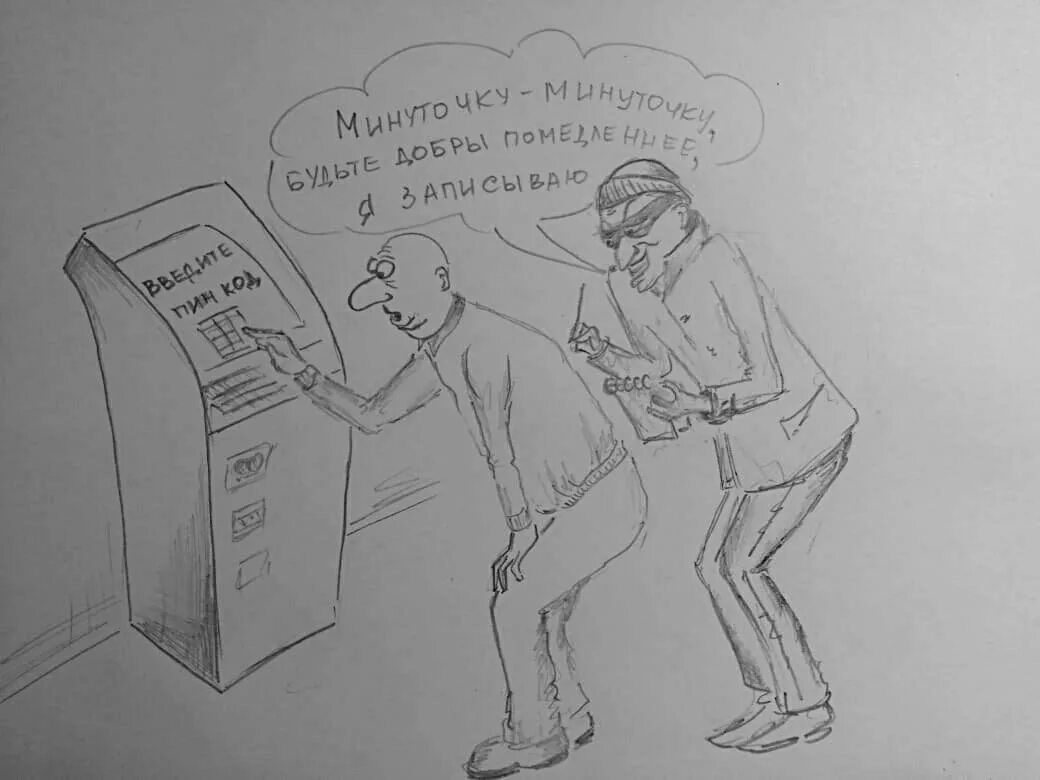 Минуточку - минуточку,
будьте добры помедленнее,
я записываю
Введите
пин код